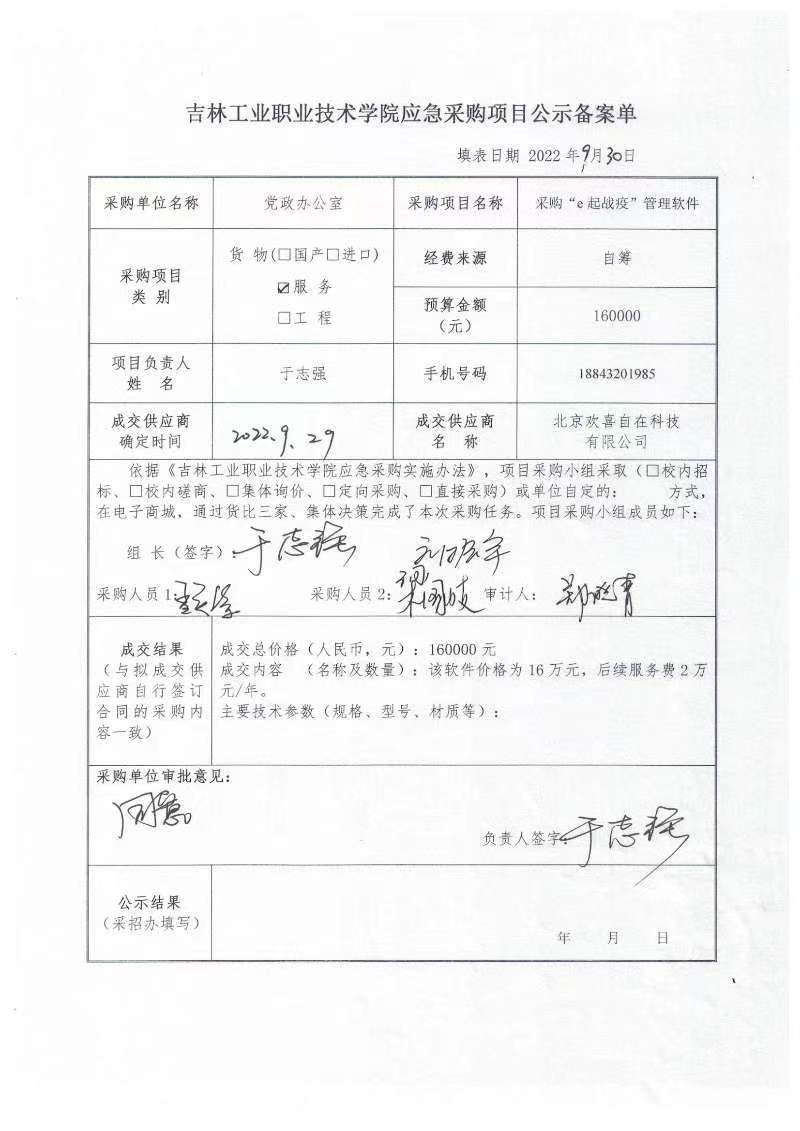 吉林工业职业技术学院应急采购项目公示备案单
填表日期 2022年9月30日
采购单位名称 党政办公室 采购项目名称 采购“e起战疫”管理软件
采购项目
类 别
货 物(□国产□进口)
☑服 务
□工 程
经费来源 自筹
预算金额
（元）
160000
项目负责人
姓 名
于志强
手机号码 18843201985
成交供应商
确定时间
2022.9.29
成交供应商
名 称
北京欢喜自在科技
有限公司
依据《吉林工业职业技术学院应急采购实施办法》，项目采购小组采取（□校内招
标、□校内磋商、□集体询价、□定向采购、□直接采购）或单位自定的： 方式，
在电子商城，通过货比三家、集体决策完成了本次采购任务。项目采购小组成员如下：
组 长（签字）：于志强
采购人员1： 采购人员2： 审计人：
成交结果
（与拟成交供
应商自行签订
合同的采购内
容一致）
成交总价格（人民币，元）：160000元
成交内容 （名称及数量）：该软件价格为16万元，后续服务费2万
元/年。
主要技术参数（规格、型号、材质等）：
采购单位审批意见：
同意
负责人签字：于志强
公示结果
（采招办填写）
年 月 日